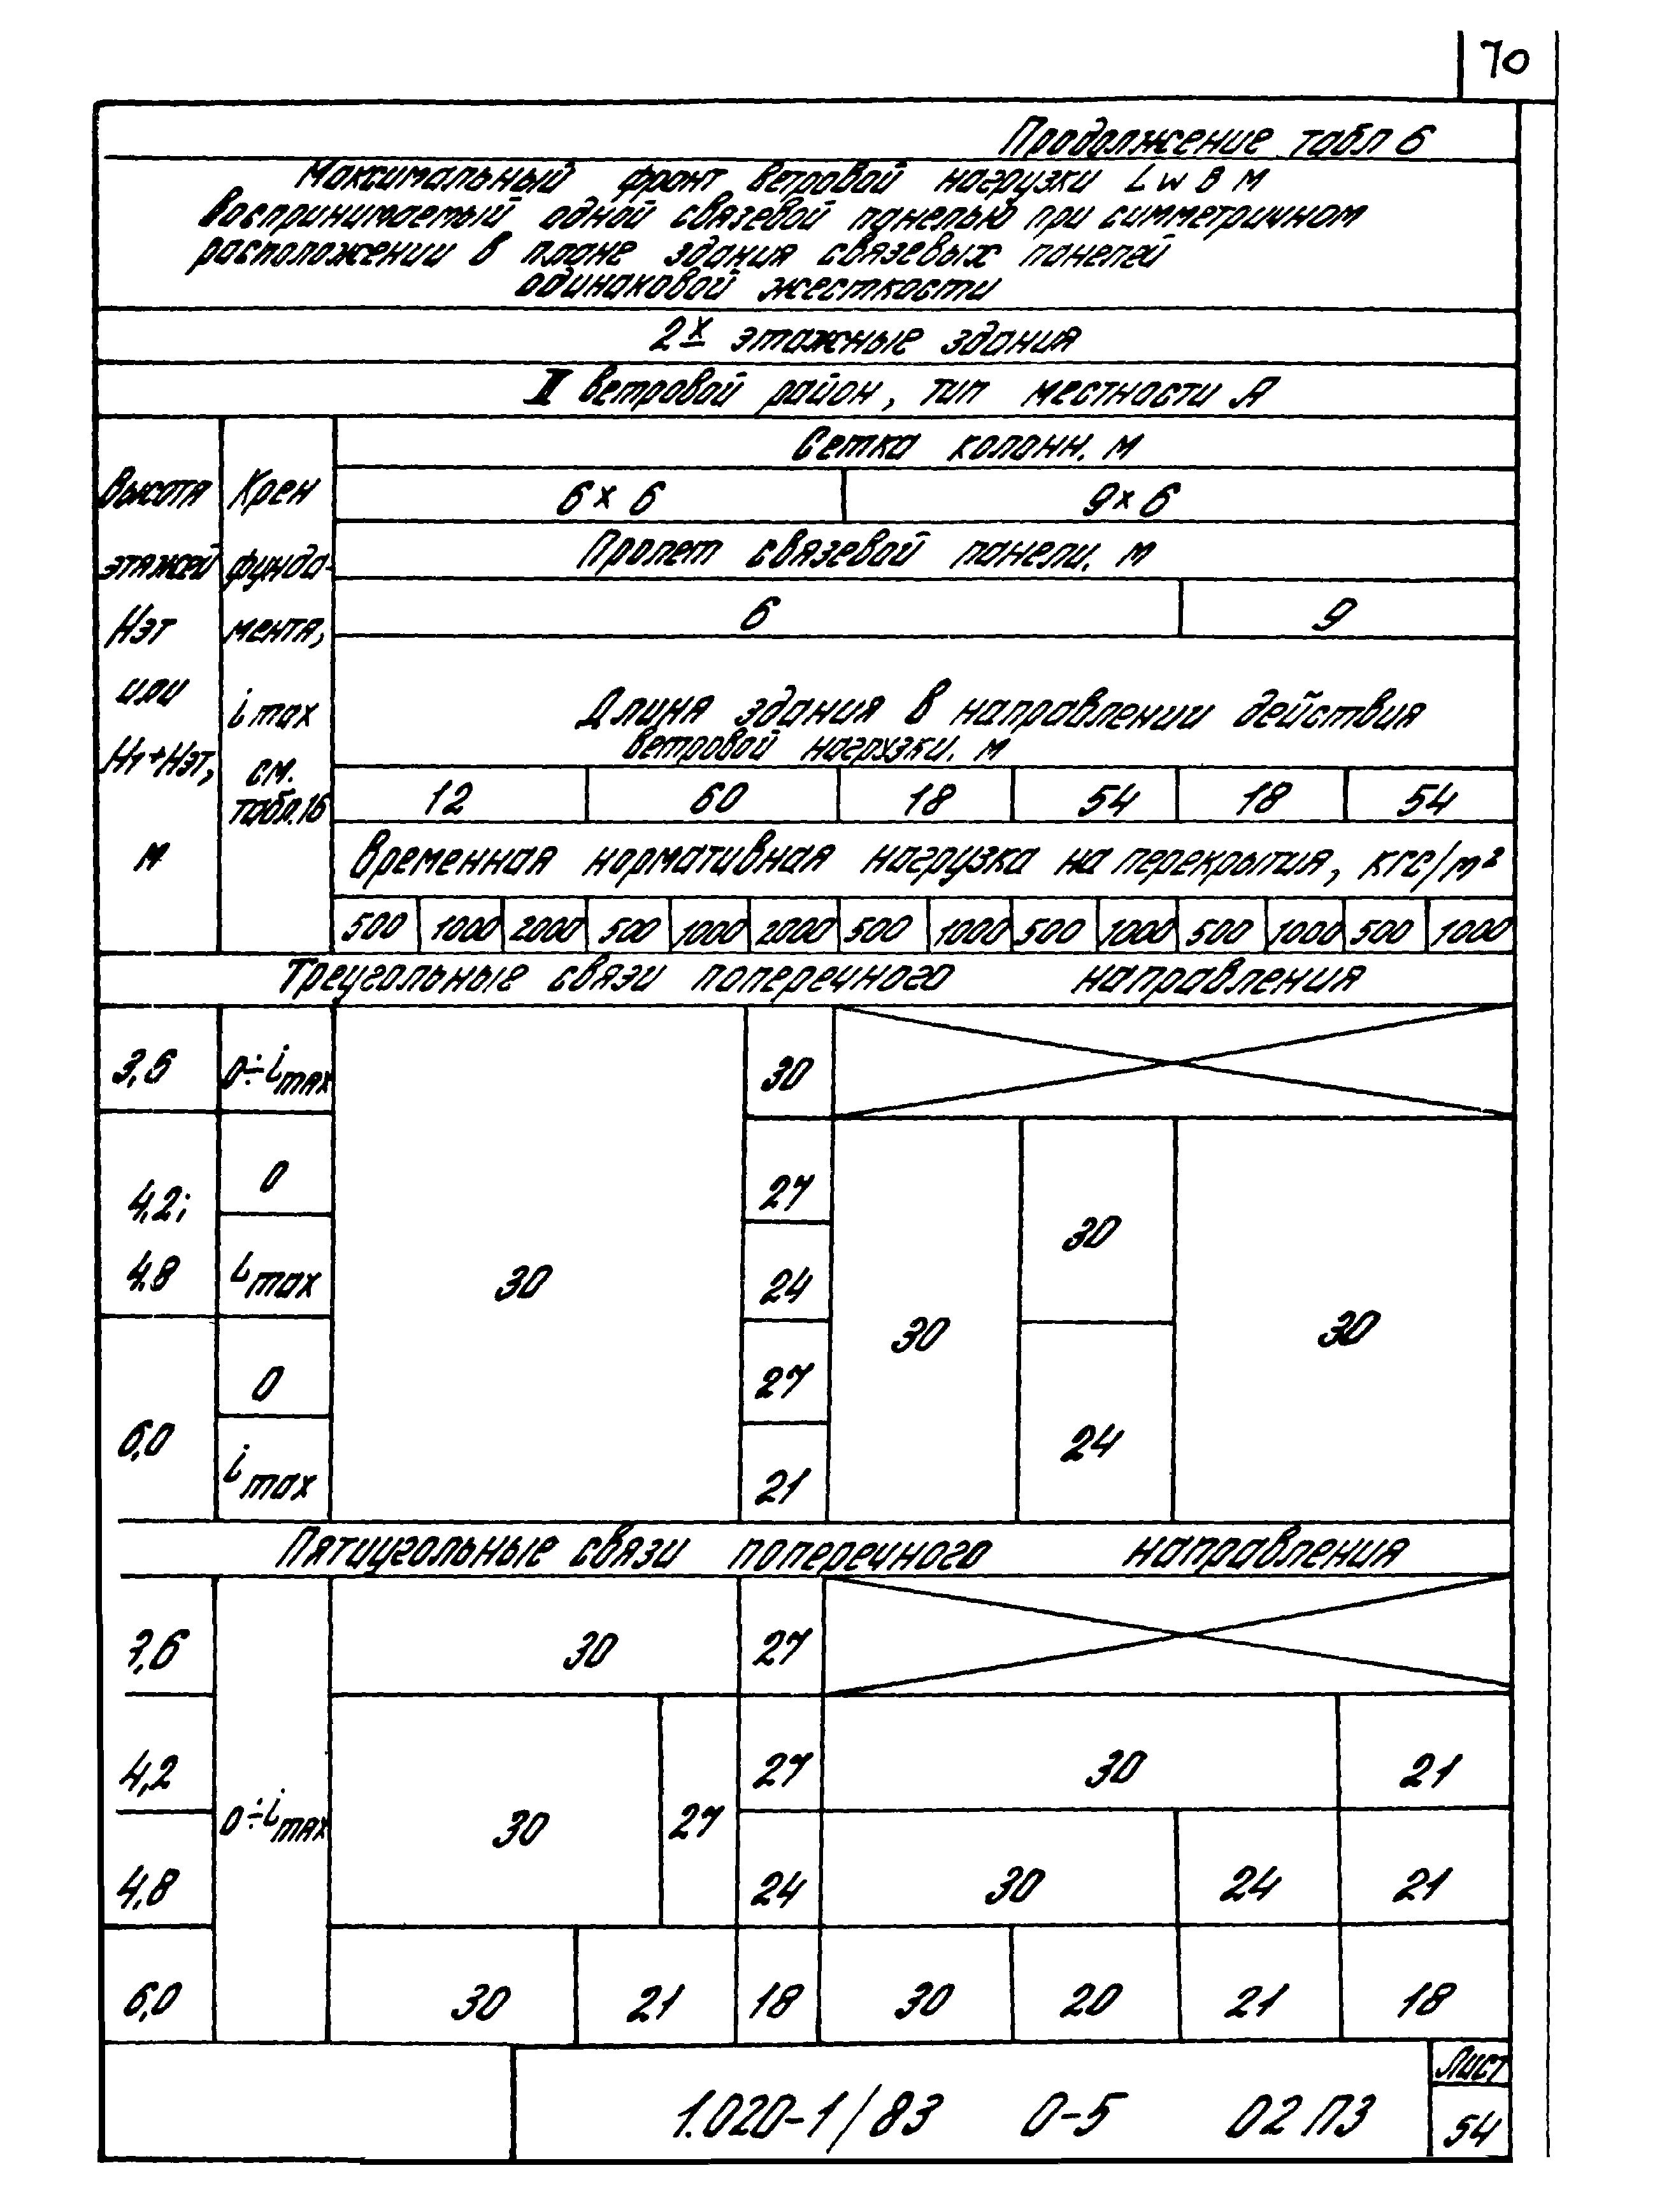 70
Продолжение табл 6
Максимальный фронт ветровой нагрузки Lw в м
воспринимаемый одной связевой панелью при симметричном
расположении в плане здания связевых панелей
одинаковой жесткости
2х этажные здания
II ветровой район, тип местности А
Сетка колонн. м
Высота Крен 6х6 9х6
этажей фунда- Пролет связевой панели. м
Нэт мента, 6 9
или i max Длина здания в направлении действия
ветровой нагрузки. м
Н1+Нэт, см.
табл.16 12 60 18 54 18 54
м Временная нормативная нагрузка на перекрытия, кгс/m²
500 1000 2000 500 1000 2000 500 1000 500 1000 500 1000 500 1000
Треугольные связи поперечного направления
3,6 0÷imax 30
0 27
4,2; 30
4,8 imax 30 24
30 30
0 27
6,0 24
imax 21
Пятиугольные связи поперечного направления
3,6 30 27
4,2 27 30 21
0÷imax 30 27
4,8 24 30 24 21
6,0 30 21 18 30 20 21 18
Лист
1.020-1/83 0-5 02 ПЗ
54